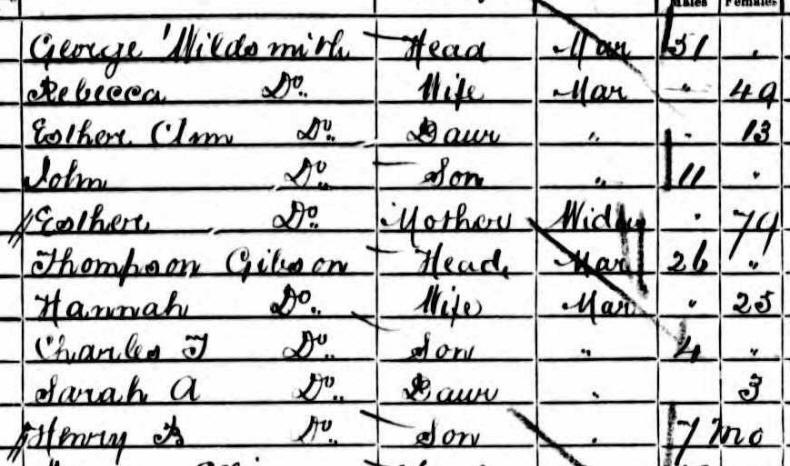 Males Females
George Wildsmith Head Mar 51 "
Rebecca Do. Wife Mar " 49
Esther Ann Do. Daur " " 13
John Do. Son " 11 "
Esther Do. Mother Widw " 79
Thompson Gibson Head Mar 26 "
Hannah Do. Wife Mar " 25
Charles T Do. Son " 4 "
Sarah A Do. Daur " 3
Henry B Do. Son " 7 mo